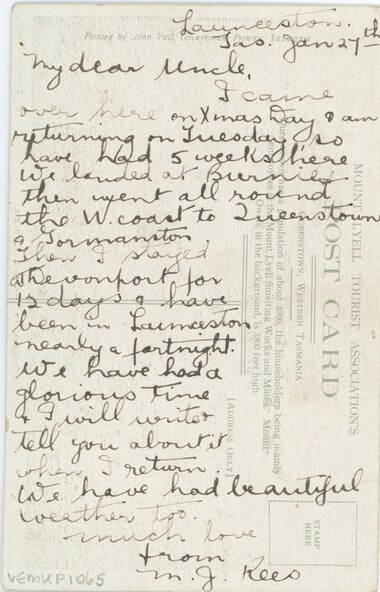 Launceston.
Tas. Jan 27th
Printed by John Vail, Government Printer, Tasmania
My dear Uncle,
I came
over here on Xmas Day & am
returning on Tuesday, so
have had 5 weeks here
We landed at Burnie
then went all round
the W. coast to Queenstown
& Gormanston.
Then I stayed
at Devonport for
12 days & have
been in Launceston
nearly a fortnight.
We have had a
glorious time
& I will write &
tell you about it
when I return.
We have had beautiful
weather too.
much love
from
M. J. Rees
MOUNT LYELL TOURIST ASSOCIATION'S
POST CARD
QUEENSTOWN, WESTERN TASMANIA
population of about 4000, the householders being mainly
the Mount Lyell Smelting Works and Mines. Mount
Owen, in the background, is 3800 feet high
[ADDRESS ONLY]
STAMP
HERE
VEMUP1065